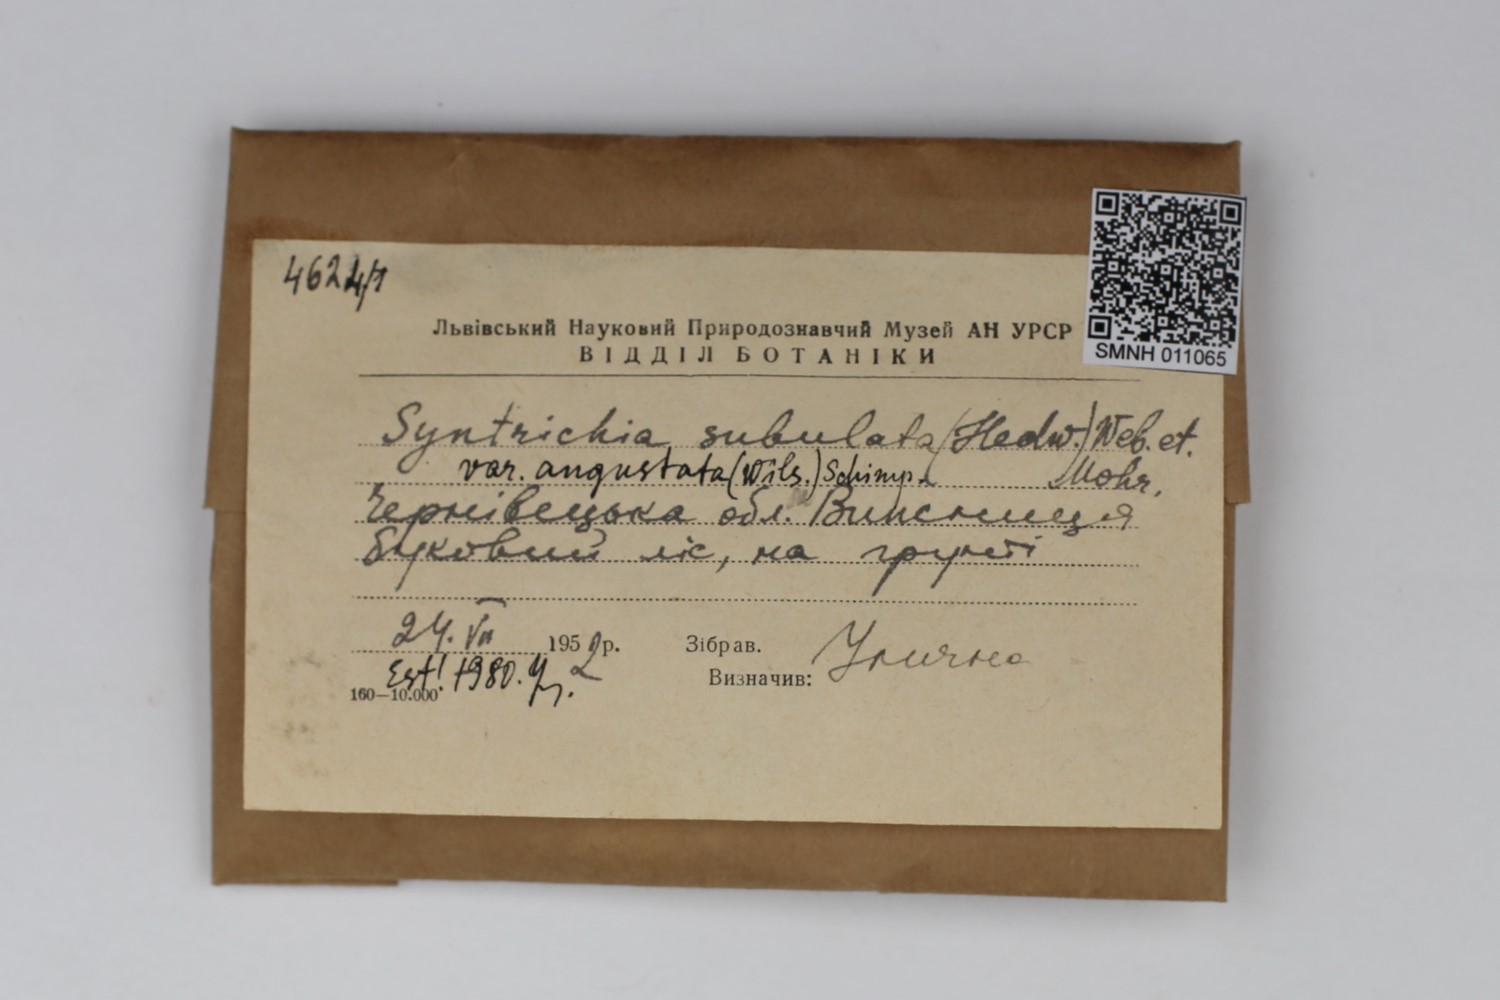 4624/1
Львівський Науковий Природознавчий Музей АН УРСР
ВІДДІЛ БОТАНІКИ
SMNH 011065
Syntrichia subulata (Hedw.) Web. et.
Mohr.
var. angustata (Wils.) Schimp.
Чернівецька обл.
буковий ліс, на грунті
24. VII 1952 р. Зібрав.
Est! 1980.
Визначив:
160—10.000